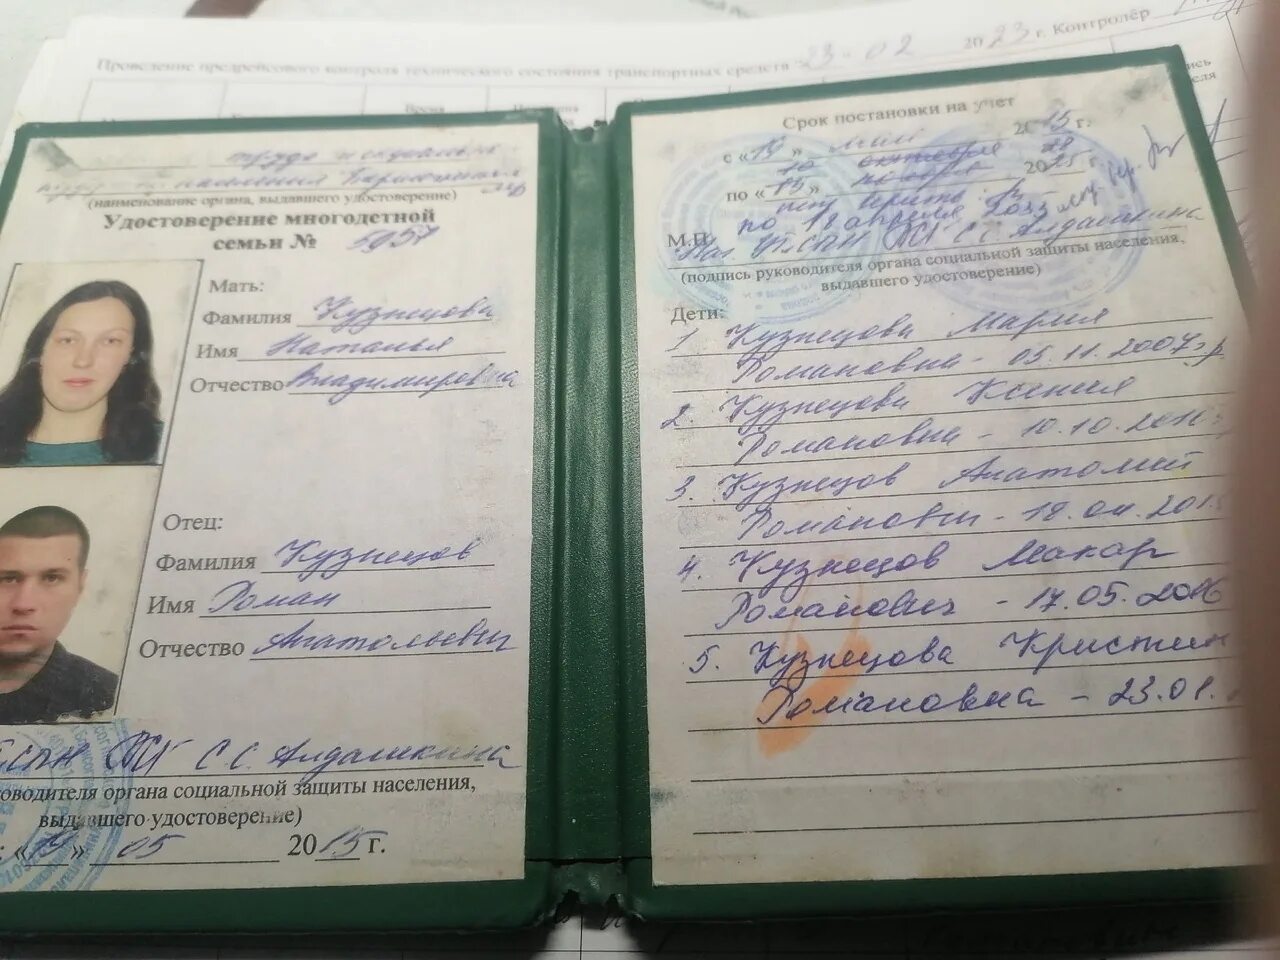 Проведение предрейсового контроля технического состояния транспортных средств 23-02 2023 г. Контролёр
Время
труда и социальн
населения
(наименование органа, выдавшего удостоверение)
Удостоверение многодетной
семьи № 5957
Мать:
Фамилия Кузнецова
Имя Наталья
Отчество Владимировна
Отец:
Фамилия Кузнецов
Имя Роман
Отчество Анатольевич
С.С. Алдашкина
оводителя органа социальной защиты населения,
выдавшего удостоверение)
: «19» 05 2015 г.
Срок постановки на учет
с «19» мая 2015 г.
по « » октября 2025 г.
верить
по 18 апреля 2033
М.П. С.С. Алдашкина
(подпись руководителя органа социальной защиты населения,
выдавшего удостоверение)
Дети:
1 Кузнецова Мария
Романовна - 05.11.2007 г.р
2. Кузнецова Ксения
Романовна - 10.10.2010
3. Кузнецов Анатолий
Романович - 18.04.2015
4. Кузнецов Макар
Романович - 17.05.2016
5. Кузнецова Кристин
Романовна - 23.01.